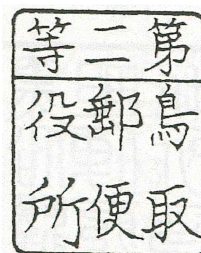 第二等
鳥取
郵便
役所